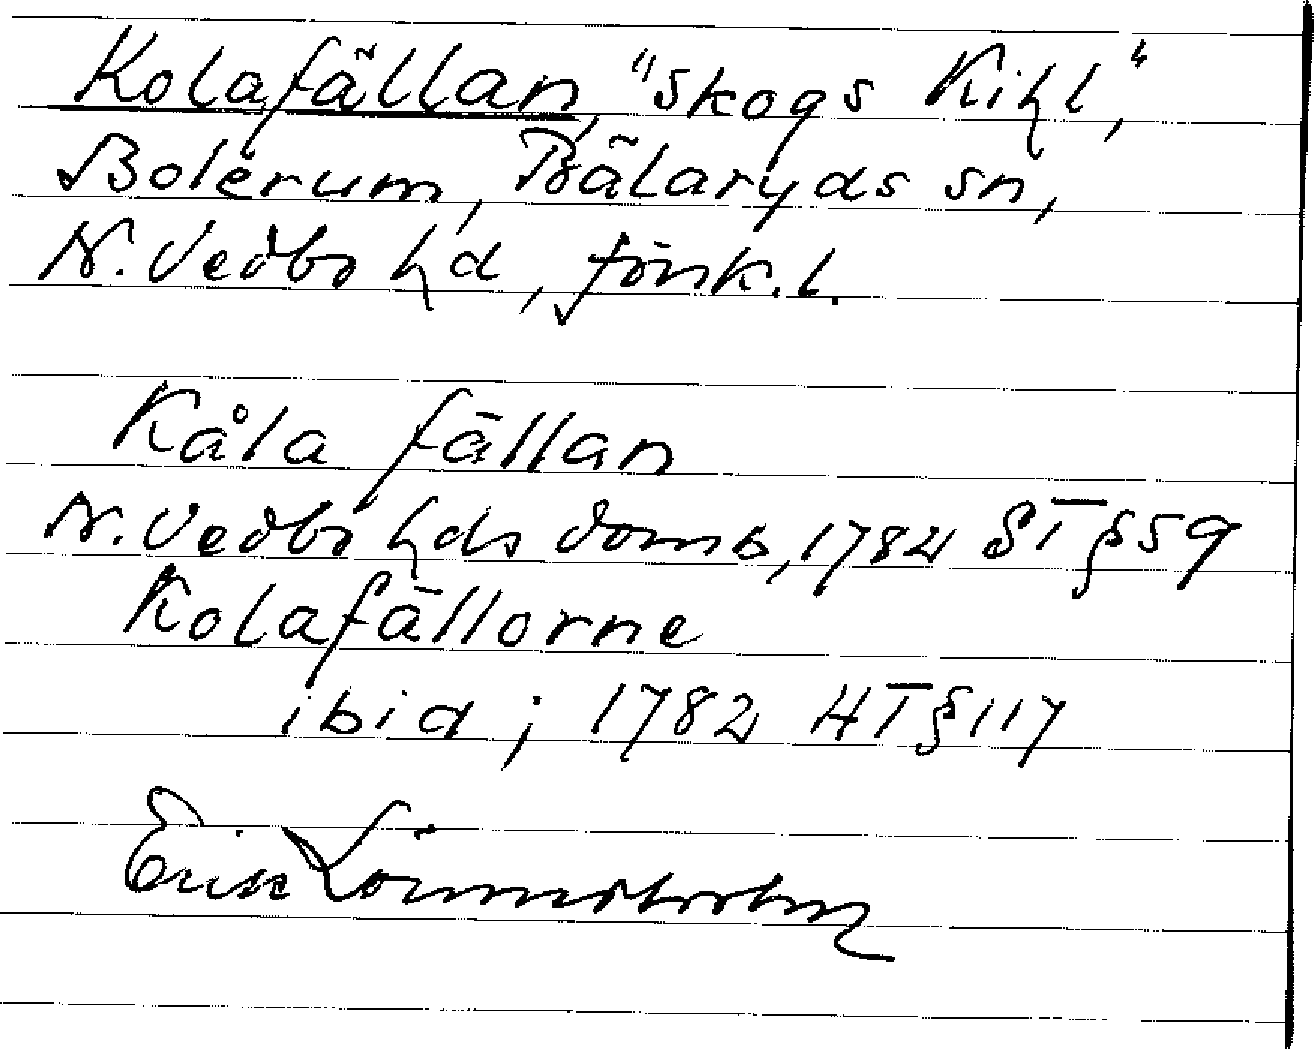 Kolafällan, "skogs Kihl",
Bolerum, Bälaryds sn,
N. Vedbo hd, Jönk. l.
Kåla fällan
N. Vedbo hds domb, 1782 ST § 59
Kolafällorne
ibid; 1782 HT § 117
Erik